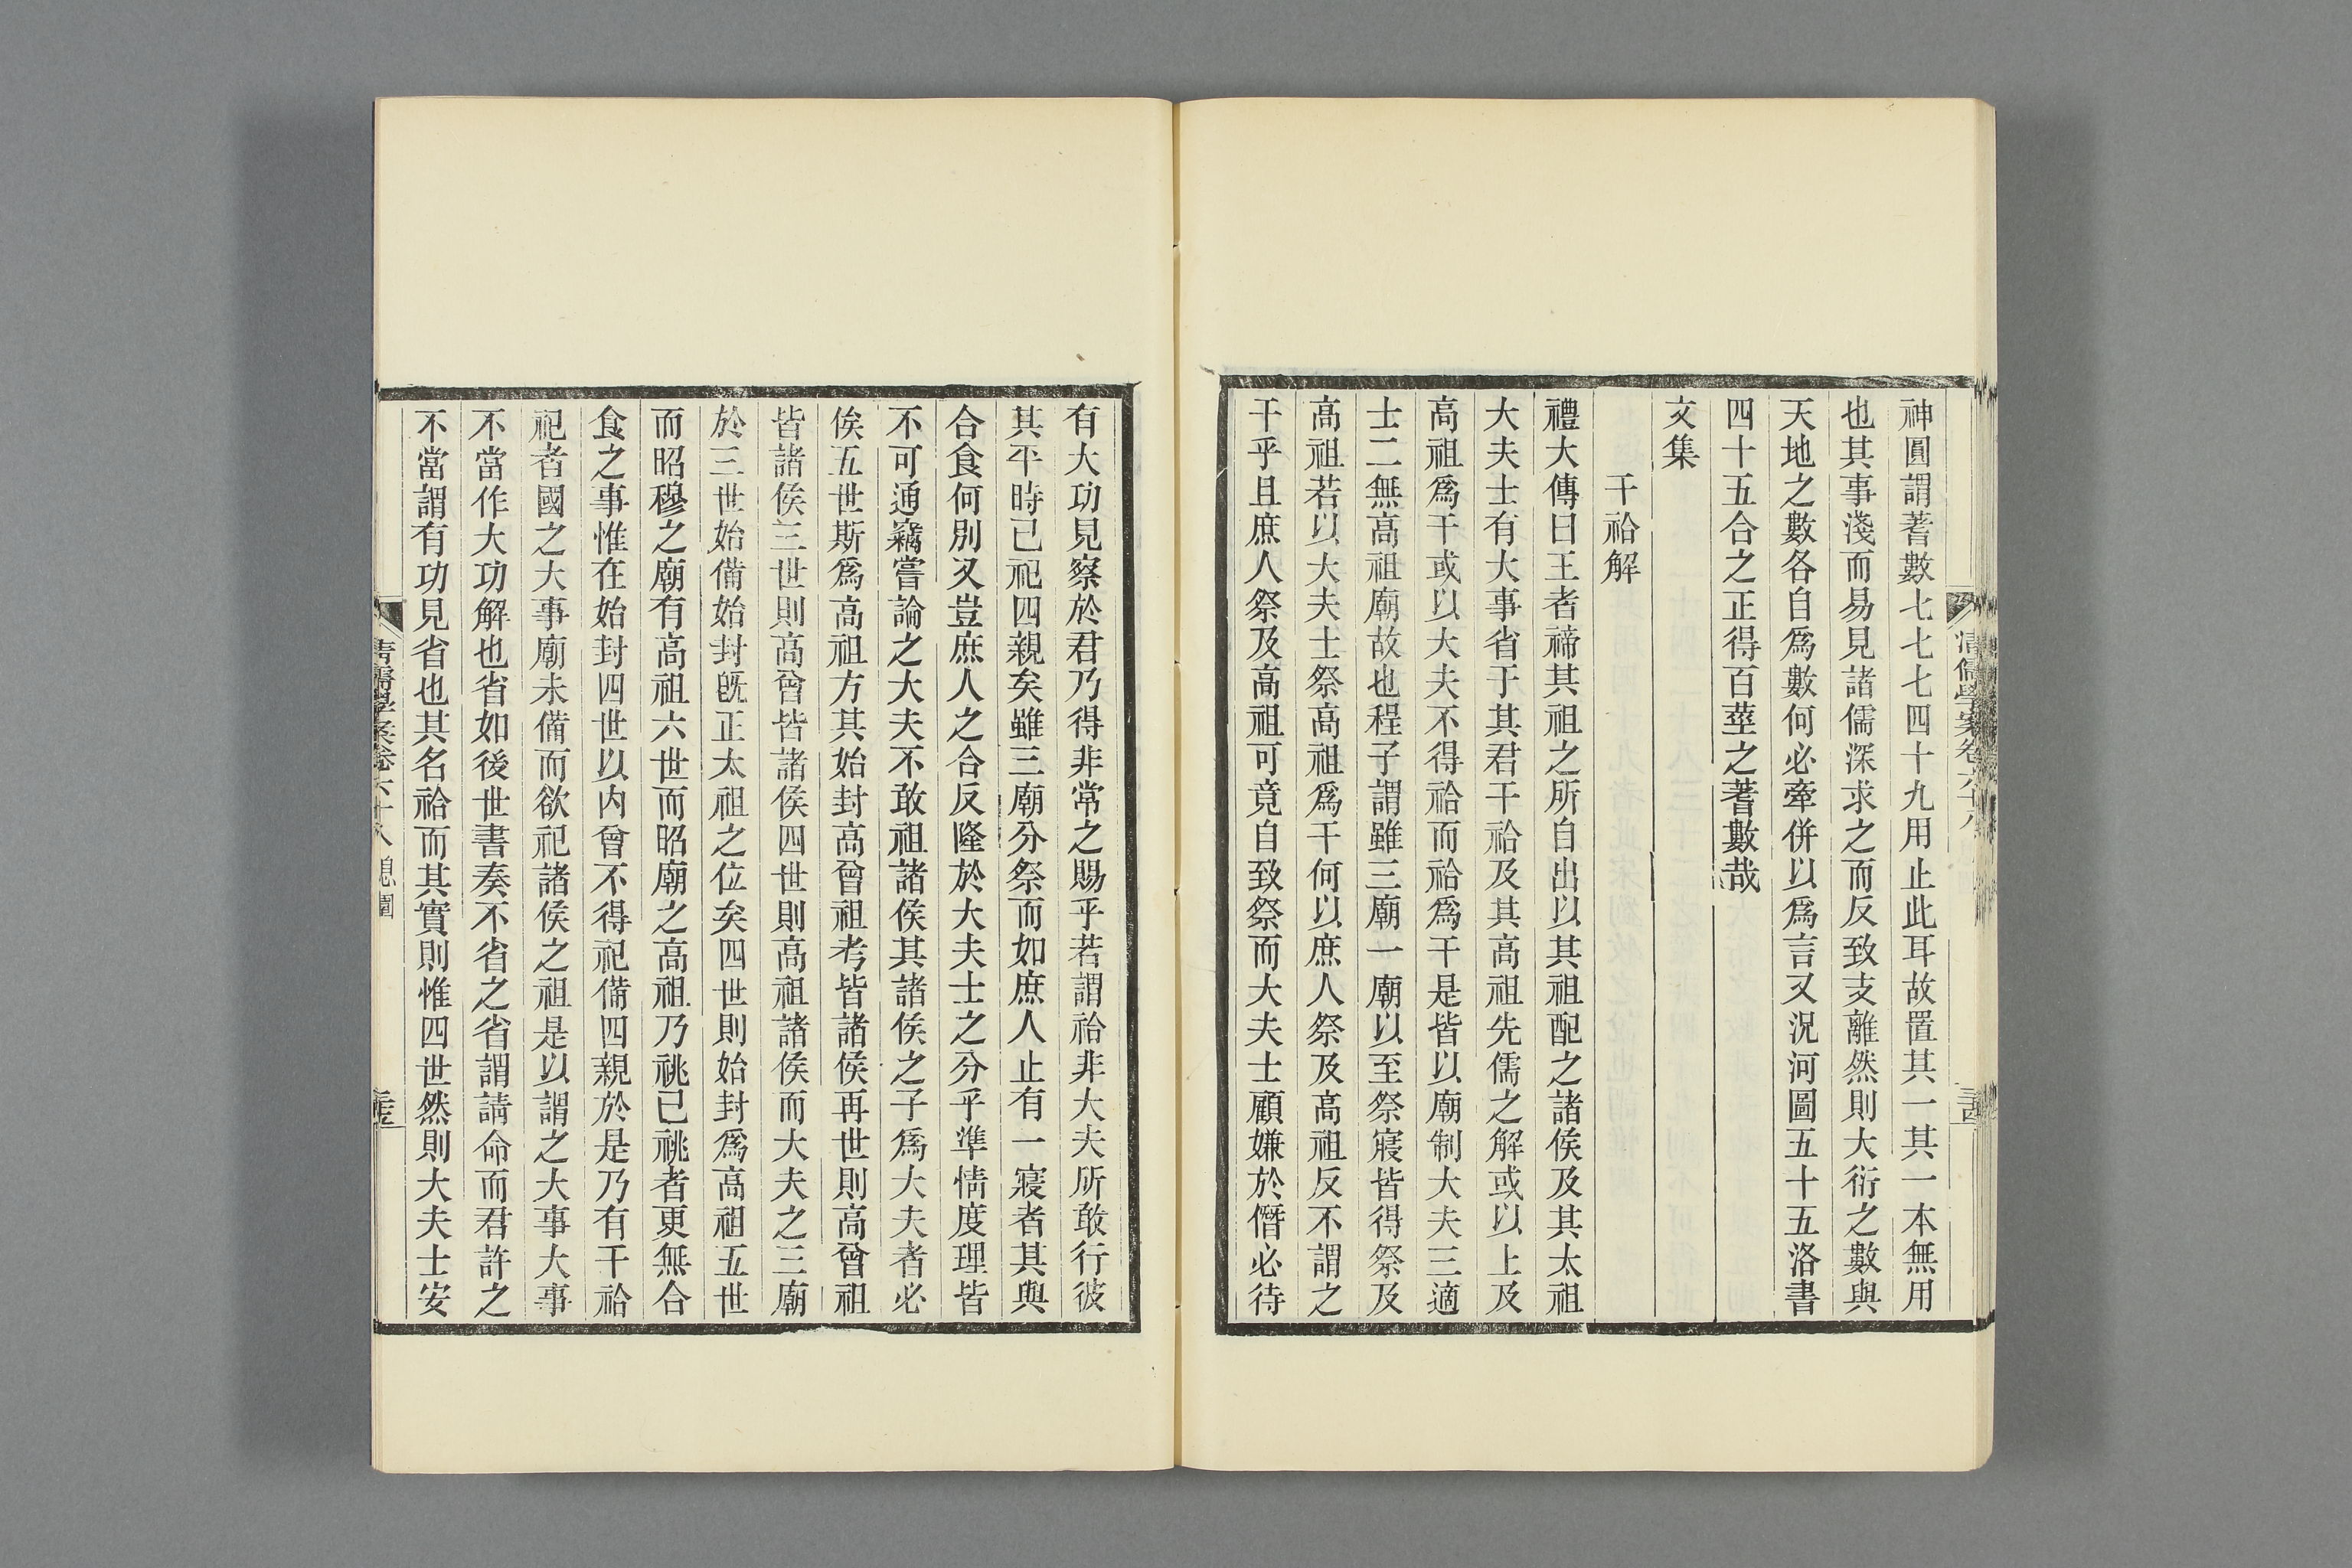 神圓謂蓍數七七七四十九用止此耳故置其一其一本無用
也其事淺而易見諸儒深求之而反致支離然則大衍之數與
天地之數各自爲數何必牽併以爲言又況河圖五十五洛書
四十五合之正得百莖之蓍數哉
文集
干祫解
禮大傳曰王者禘其祖之所自出以其祖配之諸侯及其太祖
大夫士有大事省于其君干祫及其高祖先儒之解或以上及
高祖爲干或以大夫不得祫而祫爲干是皆以廟制大夫三適
士二無高祖廟故也程子謂雖三廟一廟以至祭寢皆得祭及
高祖若以大夫士祭高祖爲干何以庶人祭及高祖反不謂之
干乎且庶人祭及高祖可竟自致祭而大夫士顧嫌於僭必待
清儒學案卷六十八
三古
有大功見察於君乃得非常之賜乎若謂祫非大夫所敢行彼
其平時已祀四親矣雖三廟分祭而如庶人止有一寢者其與
合食何別又豈庶人之合反隆於大夫士之分乎準情度理皆
不可通竊嘗論之大夫不敢祖諸侯其諸侯之子爲大夫者必
俟五世斯爲高祖方其始封高曾祖考皆諸侯再世則高曾祖
皆諸侯三世則高曾皆諸侯四世則高祖諸侯而大夫之三廟
於三世始備始封旣正太祖之位矣四世則始封爲高祖五世
而昭穆之廟有高祖六世而昭廟之高祖乃祧已祧者更無合
食之事惟在始封四世以内曾不得祀備四親於是乃有干祫
祀者國之大事廟未備而欲祀諸侯之祖是以謂之大事大事
不當作大功解也省如後世書奏不省之省謂請命而君許之
不當謂有功見省也其名祫而其實則惟四世然則大夫士安
清儒學案卷六十八 息園